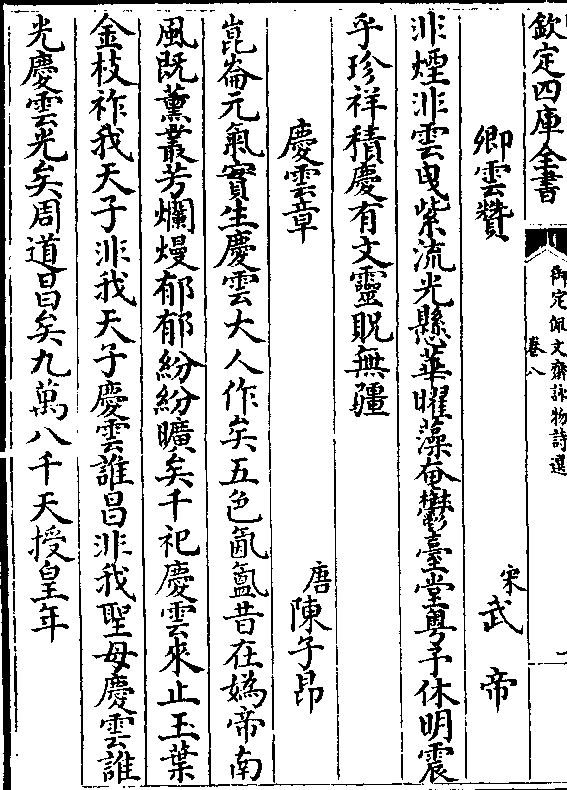 欽定四庫全書
御定佩文齋詠物詩選
卷八
卿雲贊
宋武帝
非煙非雲曳紫流光懸華曜藻奄鬱臺堂粤予休明震
乎珍祥積慶有文靈貺無疆
慶雲章
唐陳子昂
崑崙元氣實生慶雲大人作矣五色氤氳昔在媯帝南
風既薰叢芳爛熳郁郁紛紛曠矣千祀慶雲來止玉葉
金枝祚我天子非我天子慶雲誰昌非我聖母慶雲誰
光慶雲光矣周道昌矣九萬八千天授皇年